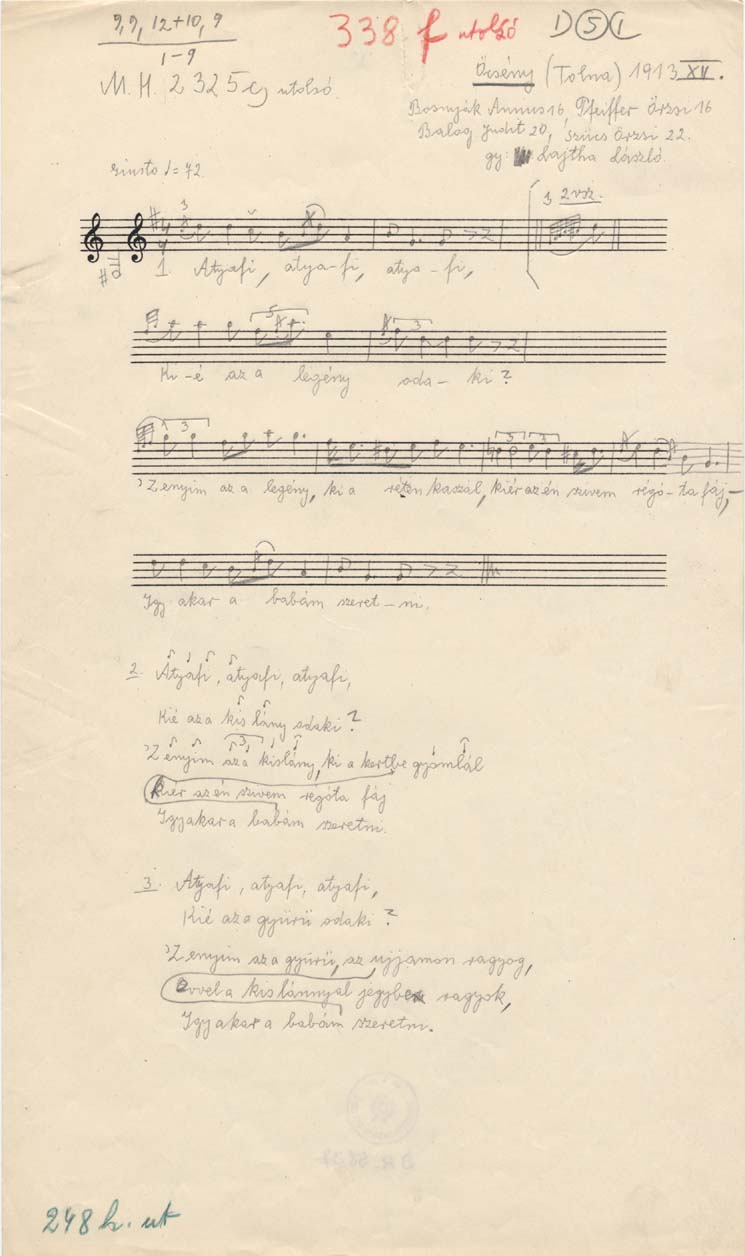 9, 9, 12+10, 9
1-9
338 f utolsó
D 5 C
M. H. 2325 c) utolsó.
Őcsény (Tolna) 1913 XII.
Bosnyák Annus 16, Pfeiffer Örzsi 16
Balog Judit 20, Szücs Örzsi 22.
gy: Lajtha László.
Giusto ♩= 72
3 2 vsz.
1. Atyafi, atya-fi, atya-fi,
Ki-é az a legény oda-ki?
'Z enyim az a legény, ki a réten kaszál, kiér az én szivem régó-ta fáj,
Igy akar a babám szeret-ni.
2. Atyafi, atyafi, atyafi,
Kié az a kis lány odaki?
'Z enyim az a kislány, ki a kertbe gyomlál
Kiér az én szivem régóta fáj
Igy akar a babám szeretni.
3. Atyafi, atyafi, atyafi,
Kié az a gyürü odaki?
'Z enyim az a gyürü, az ujjamon ragyog,
Evvel a kislánnyal jegybe vagyok,
Igy akar a babám szeretni.
248 h. ut